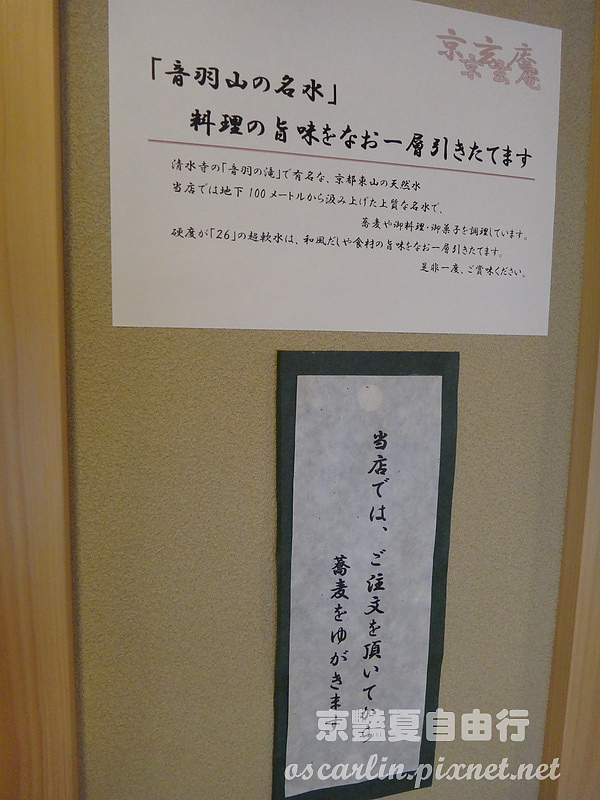 京玄庵
「音羽山の名水」
料理の旨味をなお一層引きたてます
清水寺の「音羽の滝」で有名な、京都東山の天然水
当店では地下100メートルから汲み上げた上質な名水で、
蕎麦や御料理・御菓子を調理しています。
硬度が「26」の超軟水は、和風だしや食材の旨味をなお一層引きたてます。
是非一度、ご賞味ください。
当店では、ご注文を頂いてから
蕎麦をゆがきます
京豔夏自由行
oscarlin.pixnet.net